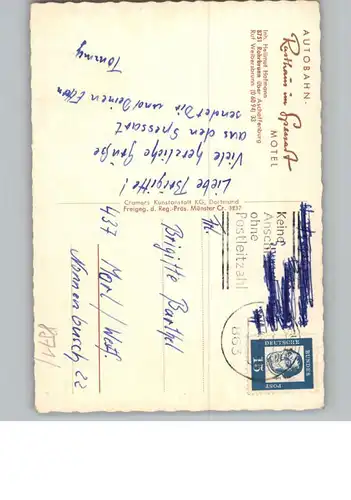 AUTOBAHN-
Rasthaus im Spessart
MOTEL
Inh. Hellmut Hofmann
8751 Rohrbrunn über Aschaffenburg
Ruf Weibersbrunn (0 60 94) 33
Liebe Brigitte!
Viele herzliche Grüße
aus den Spessart
sendet Dir und Deinen Eltern
Tommy
Cramers Kunstanstalt KG, Dortmund
Freigeg. d. Reg.-Präs. Münster Cr.
Keine
Anschrift
ohne
Postleitzahl
863
DEUTSCHE
BUNDES
POST
15
Brigitte Barthel
437 Marl/Westf.
Nonnenbusch 22
8871/